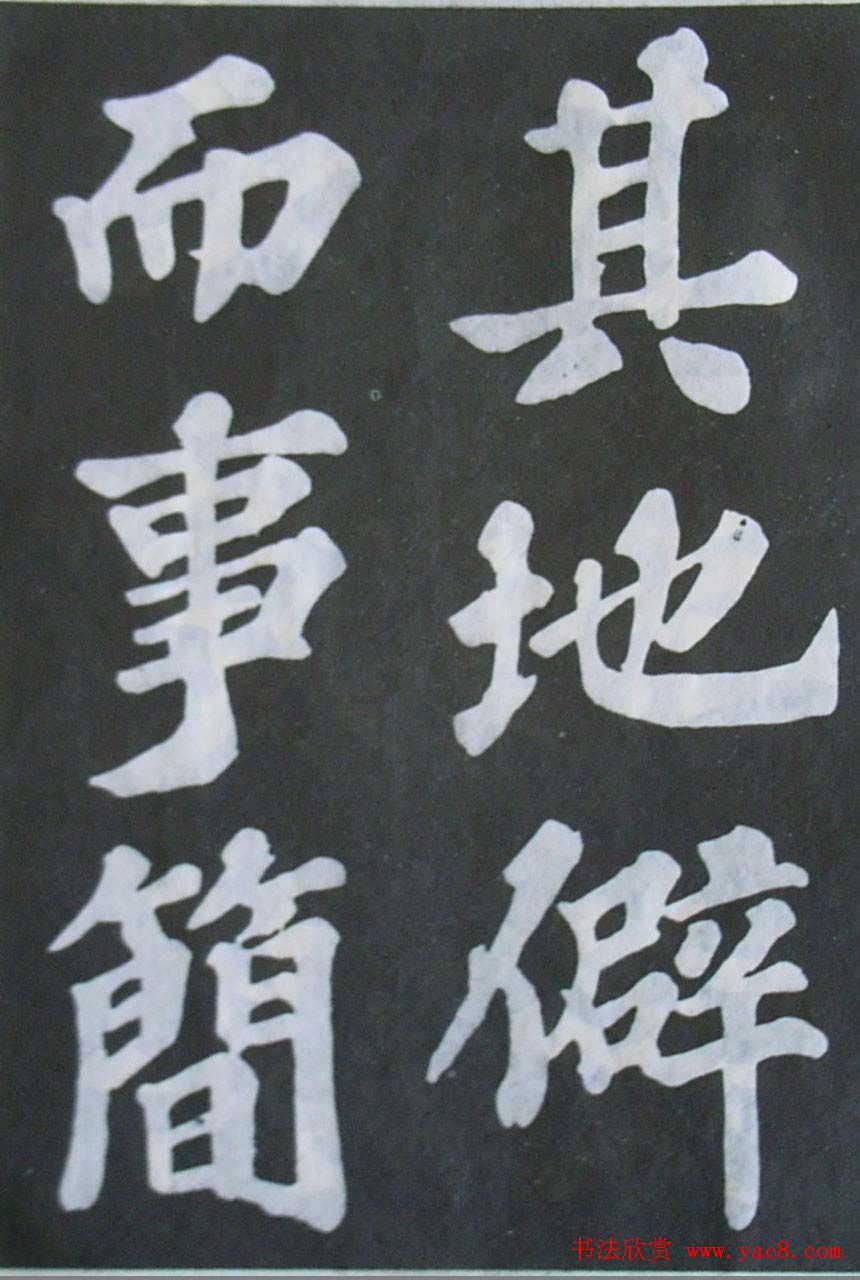 其地僻
而事簡
书法欣赏 www.yac8.com